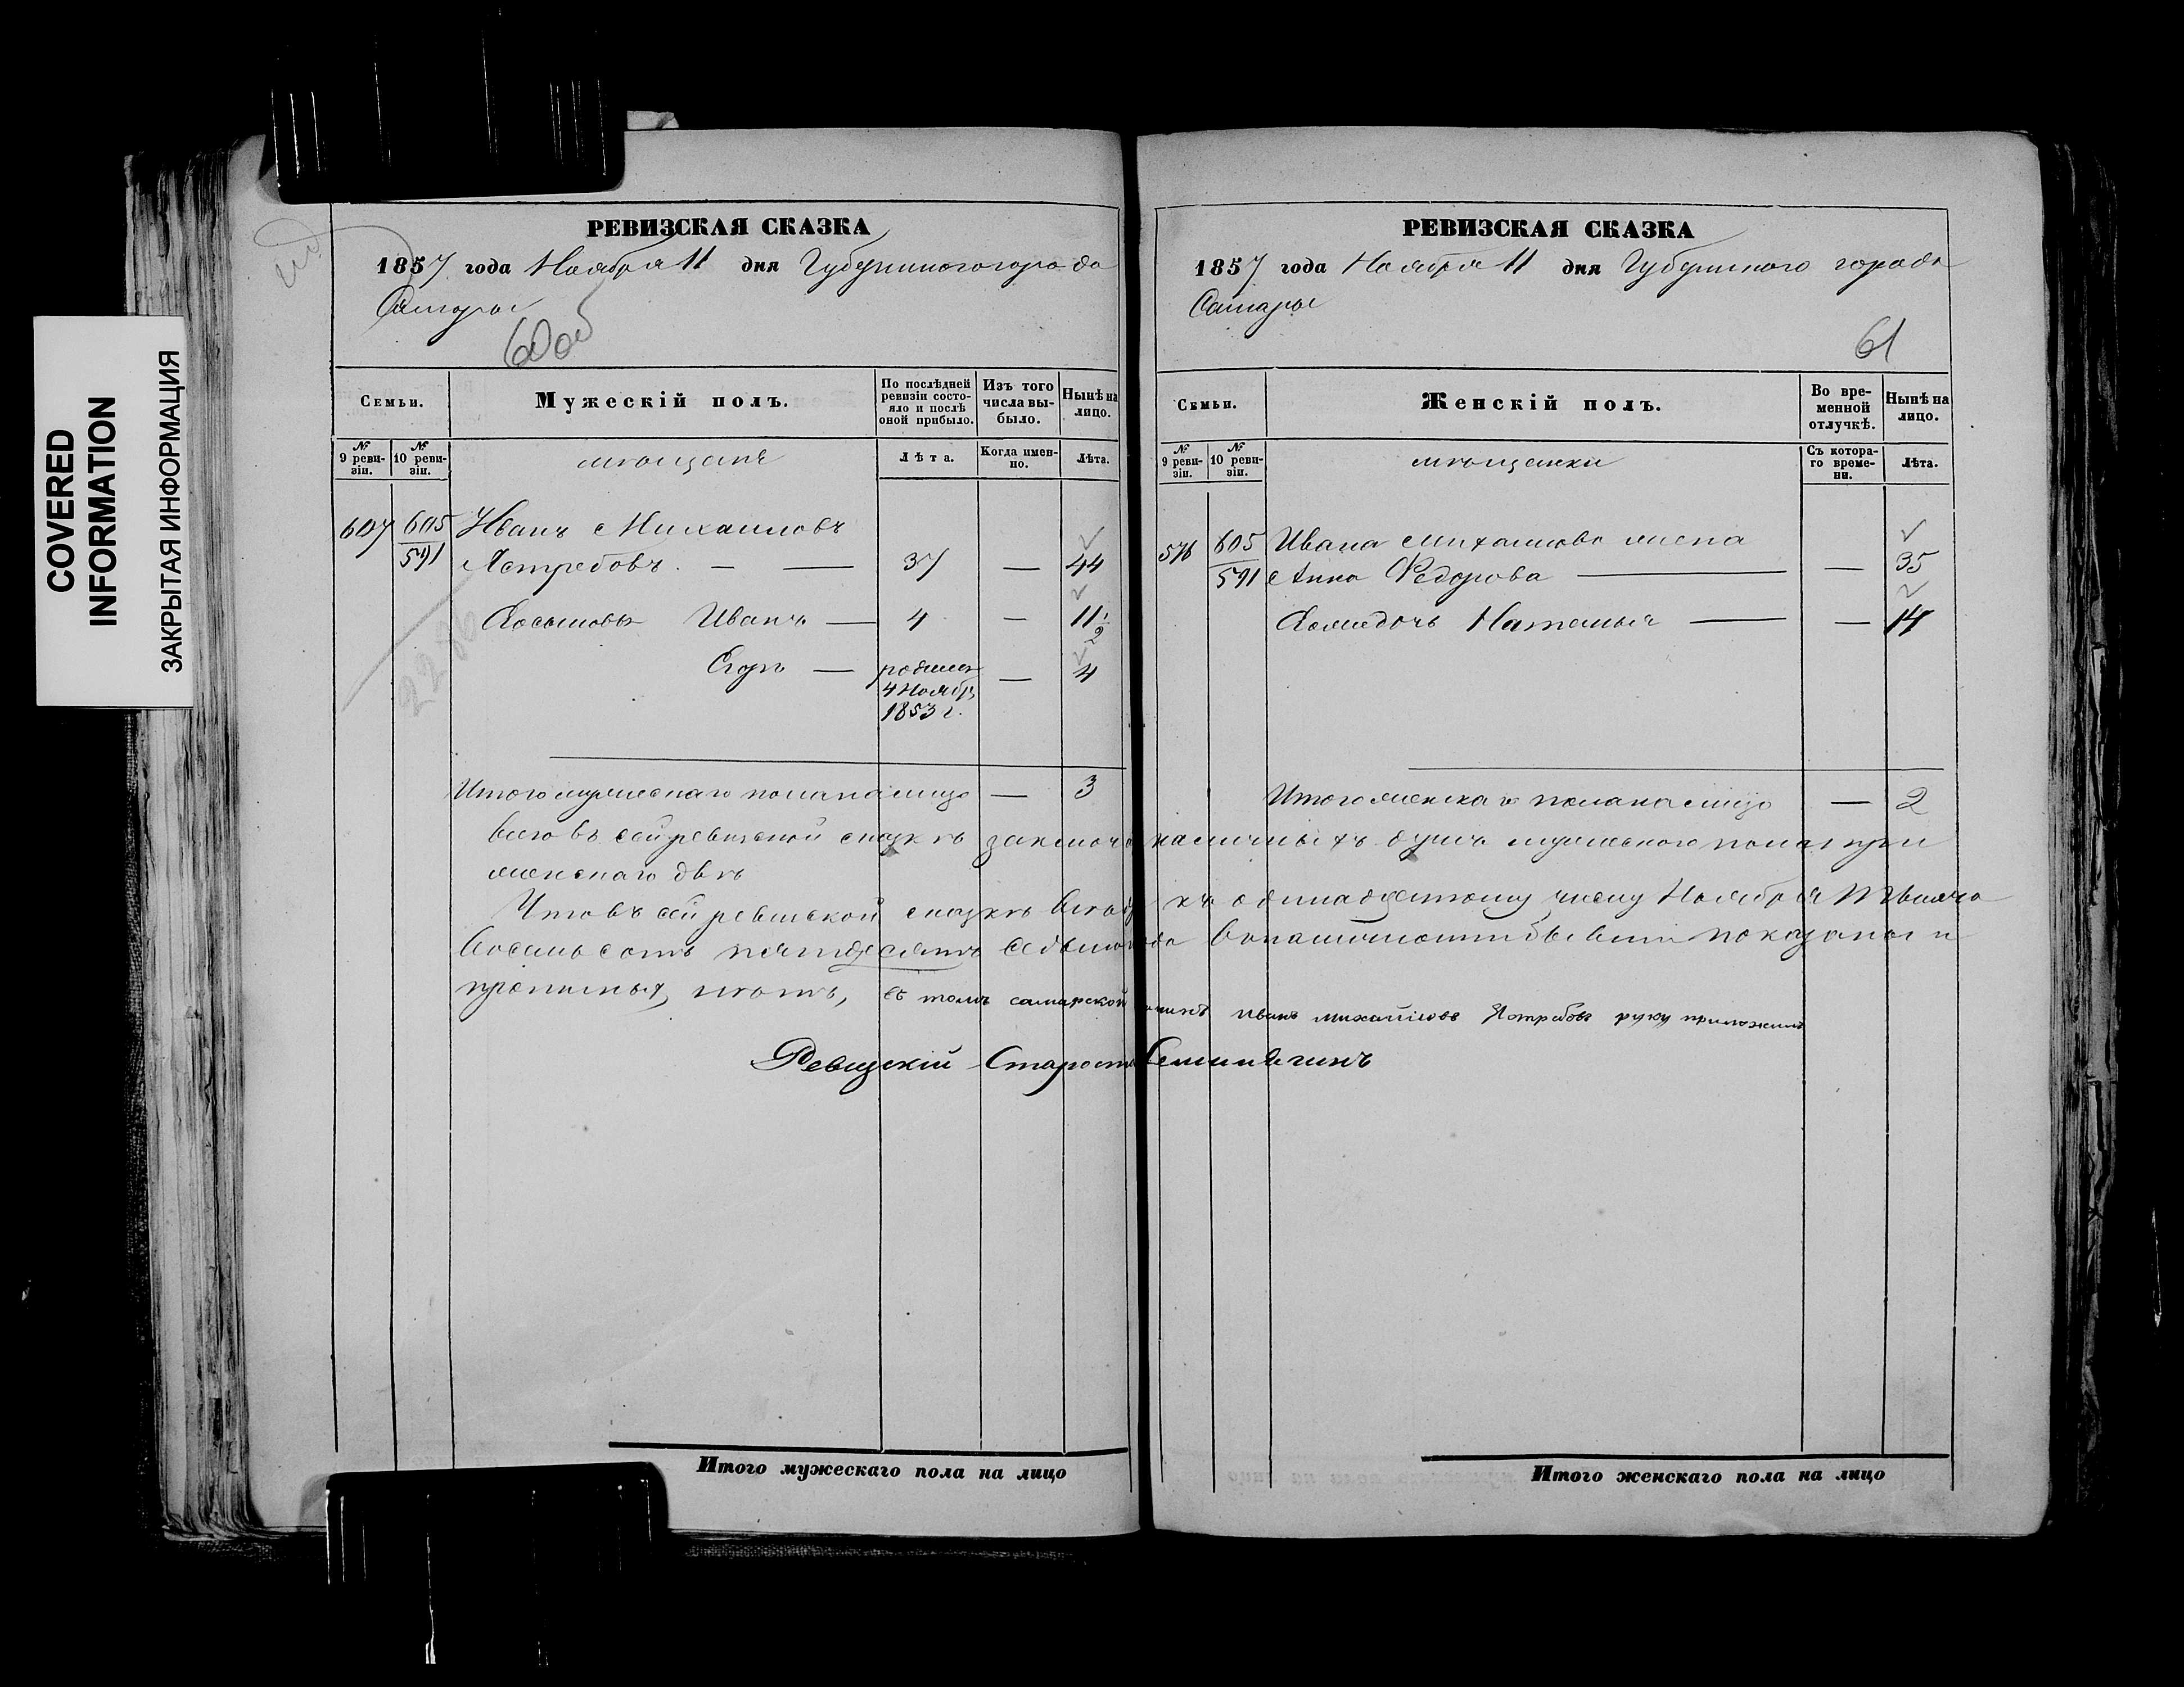 COVERED
INFORMATION
ЗАКРЫТАЯ ИНФОРМАЦИЯ
РЕВИЗСКАЯ СКАЗКА
1857 года Ноября 11 дня Губернского города
Самары
60об
Семьи.
Мужескій полъ.
По послѣдней ревизіи состояло и послѣ оной прибыло.
Изъ того числа выбыло.
Нынѣ на лицо.
№ 9 ревизіи.
№ 10 ревизіи.
мѣщане
Лѣта.
Когда именно.
Лѣта.
607 605 Иванъ Михаиловъ
591 Ястребовъ. — — 37 — 44
Иванъ — 4 — 11 1/2
Егоръ — родился 4 — 4
4 Ноябр
1853 г.
Итого мужескаго пола на лицо — 3
РЕВИЗСКАЯ СКАЗКА
1857 года Ноября 11 дня Губернского города
Самары
61
Семьи.
Женскій полъ.
Во временной отлучкѣ.
Нынѣ на лицо.
№ 9 ревизіи.
№ 10 ревизіи.
мѣщанки
Съ котораго времени.
Лѣта.
576 605 Ивана Михаилова жена
591 Анна Федорова — — 35
Наталья — — 14
Итого женскаго пола на лицо — 2
всего въ сей ревизской сказкѣ наличныхъ душъ мужескаго пола три
женскаго двѣ
Что въ сей ревизской сказкѣ къ одинадцатому числу Ноября Тысяча
Восемьсотъ пятдесятъ седьмого показаны и
прописныхъ нѣтъ, въ томъ самарской Иванъ Михайловъ Ястребовъ руку приложилъ
Ревизскій Староста
Итого мужескаго пола на лицо
Итого женскаго пола на лицо